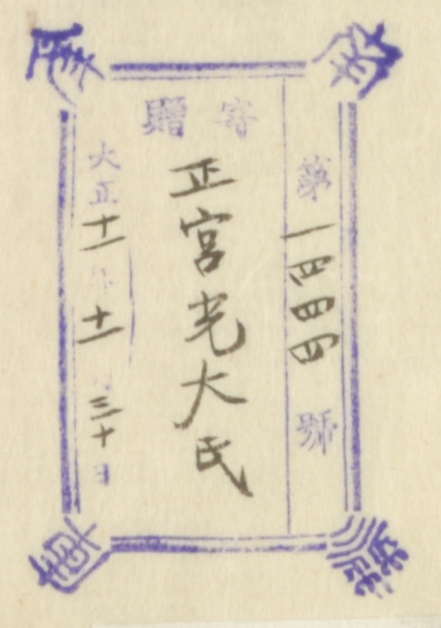 第一四四四號
寄贈
正宮光大氏
大正十一年十一月三十日